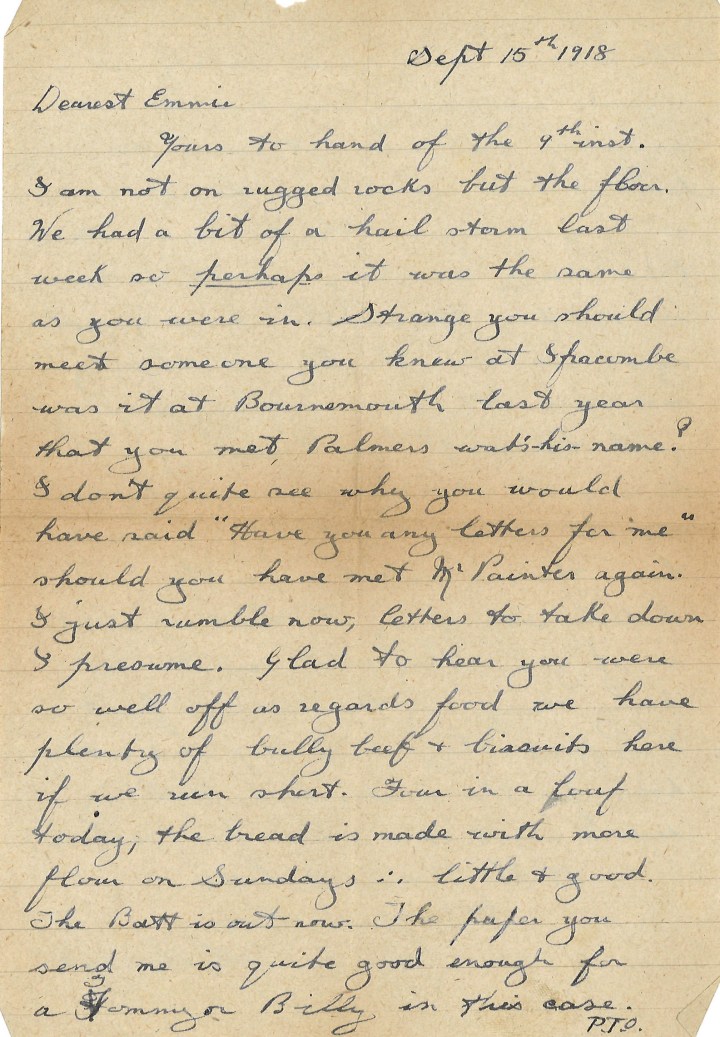 Sept 15th 1918
Dearest Emmie
Yours to hand of the 9th inst.
I am not on rugged rocks but the floor.
We had a bit of a hail storm last
week so perhaps it was the same
as you were in. Strange you should
meet someone you knew at Ilfracombe
was it at Bournemouth last year
that you met, Palmers wat's-his-name?
I don't quite see why you would
have said "Have you any letters for me"
should you have met Mr Painter again.
I just rumble now, letters to take down
I presume. Glad to hear you were
so well off as regards food we have
plenty of bully beef & biscuits here
if we run short. Four in a loaf
today, the bread is made with more
flour on Sundays ∴ little & good.
The Batt is out now. The paper you
send me is quite good enough for
a Tommy or Billy in this case.
P.T.O.